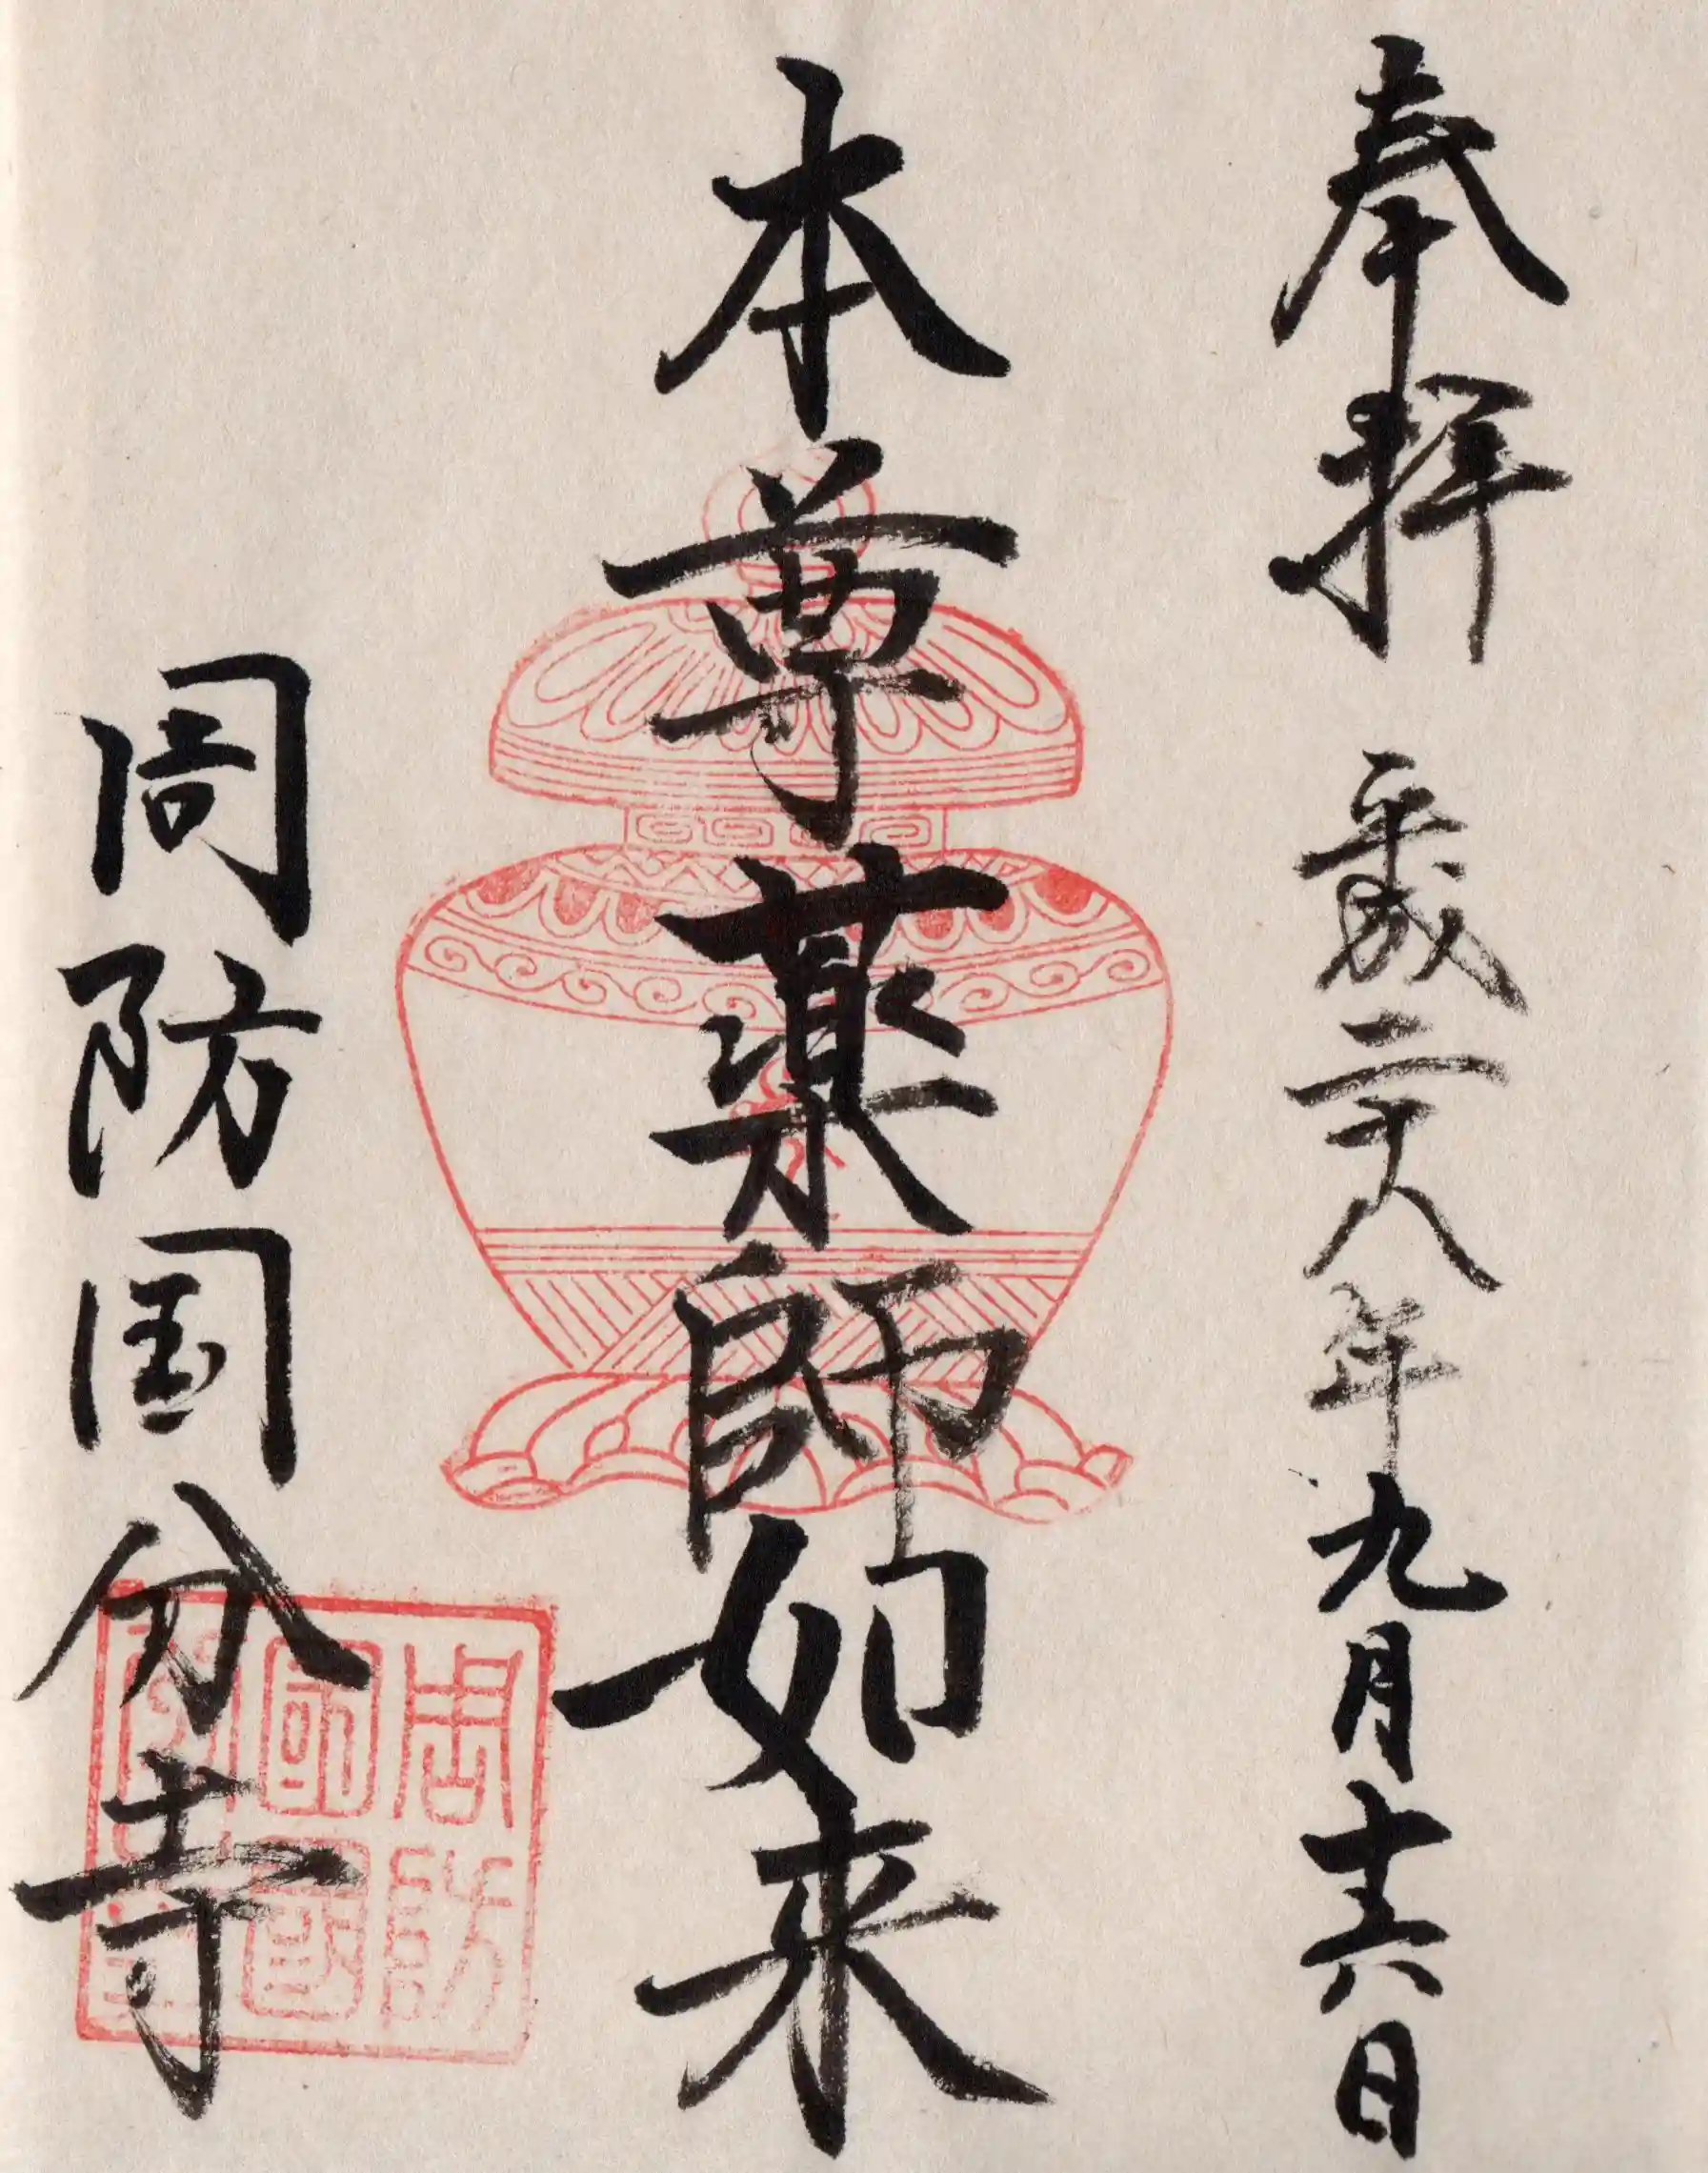 奉拝 平成二十八年九月十六日
本尊薬師如来
周防国分寺
周防
國國